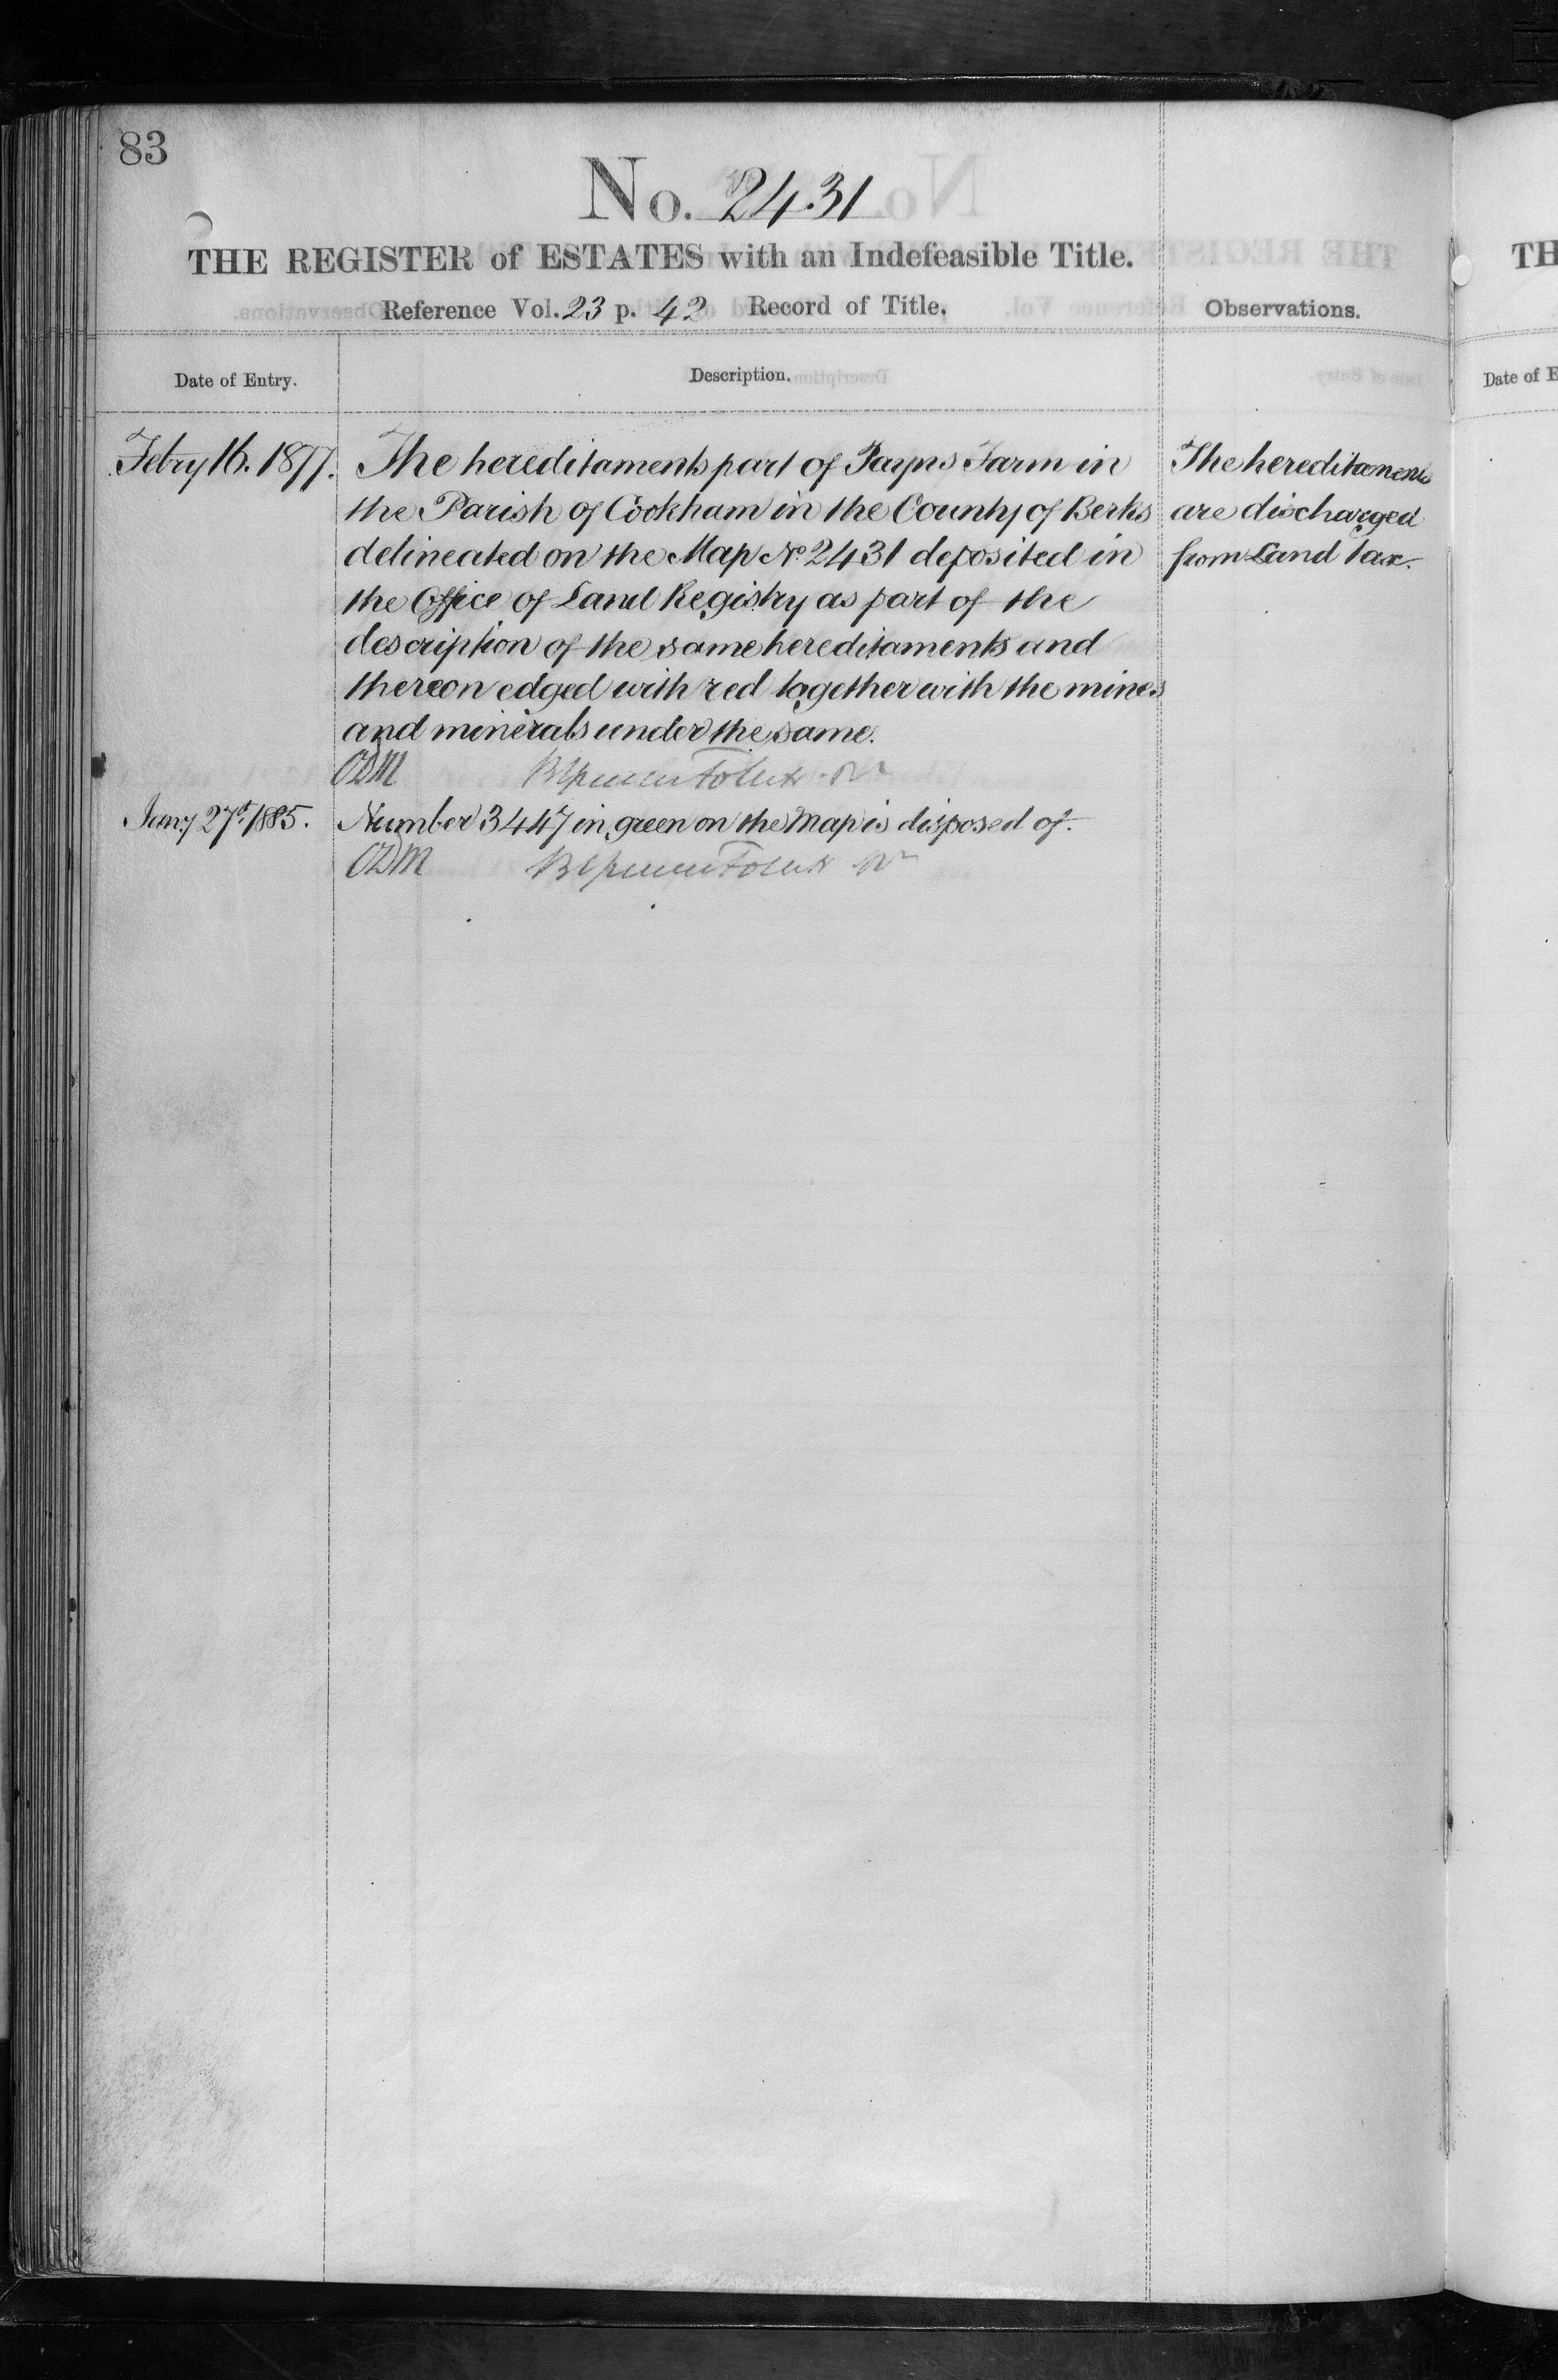 83
No. 2431
THE REGISTER of ESTATES with an Indefeasible Title.
Reference Vol. 23 p. 42 Record of Title.
Observations.
Date of Entry.
Description.
Febry 16. 1877.
The hereditaments part of Payns Farm in
the Parish of Cookham in the County of Berks
delineated on the Map No 2431 deposited in
the Office of Land Registry as part of the
description of the same hereditaments and
thereon edged with red together with the mines
and minerals under the same.
The hereditaments
are discharged
from Land tax.
Jany 27th 1885.
Number 3447 in green on the Map is disposed of.
TH
Date of E